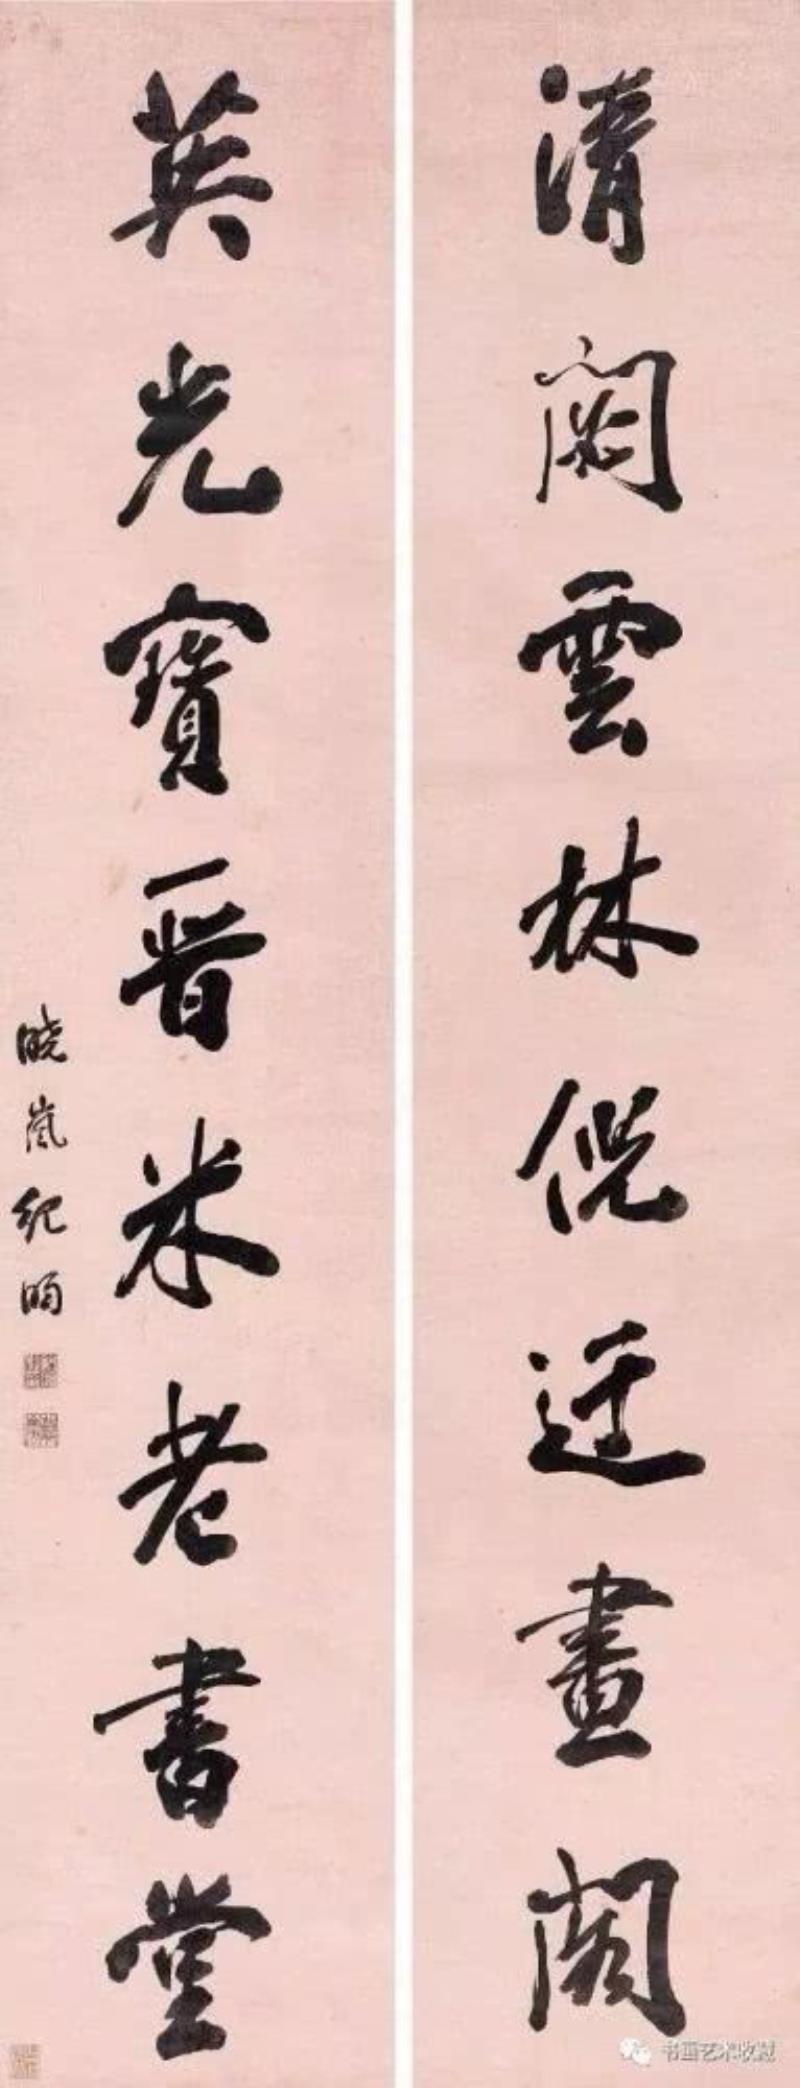 清閟雲林倪迂畫閣
英光寶晉米老書堂
曉嵐紀昀
书画艺术收藏